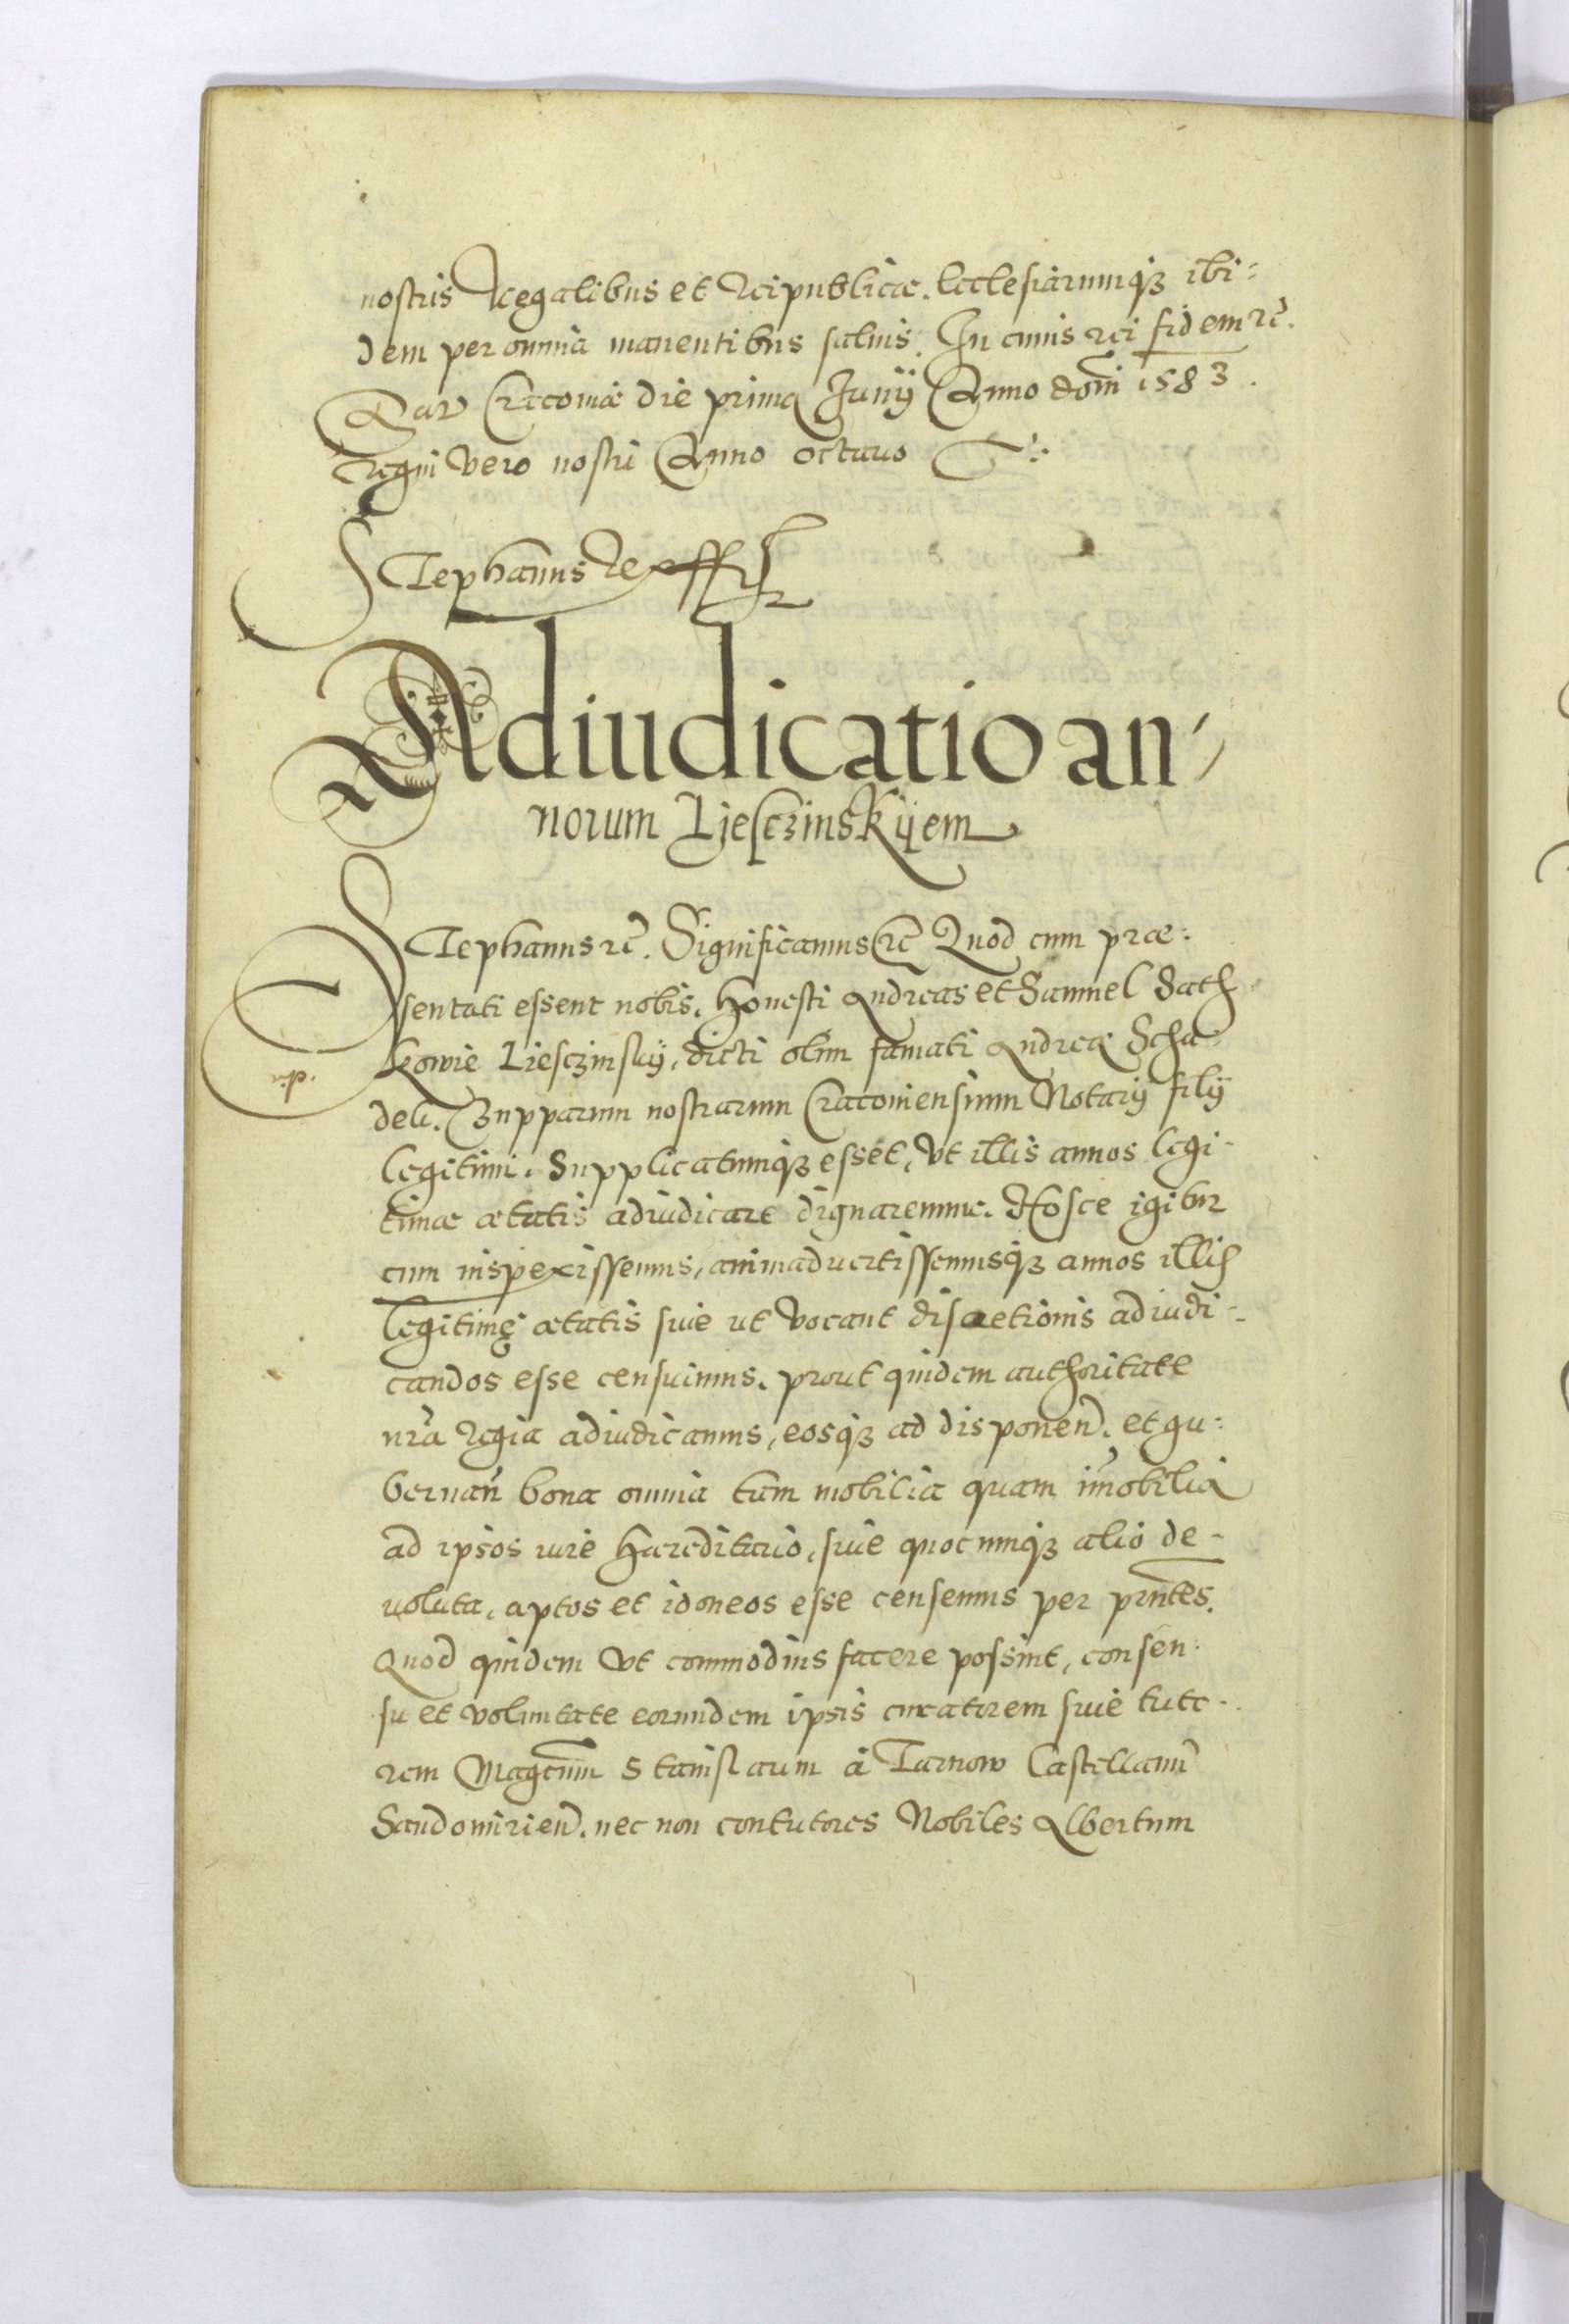 nostris Regalibus et Reipublicae. Ecclesiarumq3 ibi-
dem per omnia manentibus saluis. In cuius rei fidem etc.
Dat Cracouiae die prima Junij Anno domi 1583.
regni vero nostri Anno octauo
Stephanus Rex ssst
Adiudicatio an-
norum Ljesczinskijem
Stephanus etc. Significamus etc Quod cum prae:
sentati essent nobis. Honesti Andreas et Samuel Sath
kowie Liesczinskij, dicti olim famati Andreae Scha
deli. Czupparum nostrarum Cracouiensium Notarij filij
legitimi. Supplicatumq3 esset, vt illis annos legi-
timae aetatis adiudicare dignaremur. Hosce igitur
cum inspexissemus, animaduertissemusq3 annos illis
legitimę aetatis siue ut vocant discretionis adiudi-
candos esse censuimus. prout quidem authoritate
nrã regia adiudicamus, eosq3 ad disponend. et gu:
bernañ bona omnia tam mobilia quam imobilia
ad ipsos iure haereditario, siue quocumq3 alio de-
uoluta, aptos et idoneos esse censemus per prntes.
Quod quidem vt commodius facere possint, consen-
su et voluntate eorundem ipsis curatorem siue tuto-
rem Magcum Stanislaum à Tarnow Castellanũ
Sandomirieñ. nec non contutores Nobiles Albertum